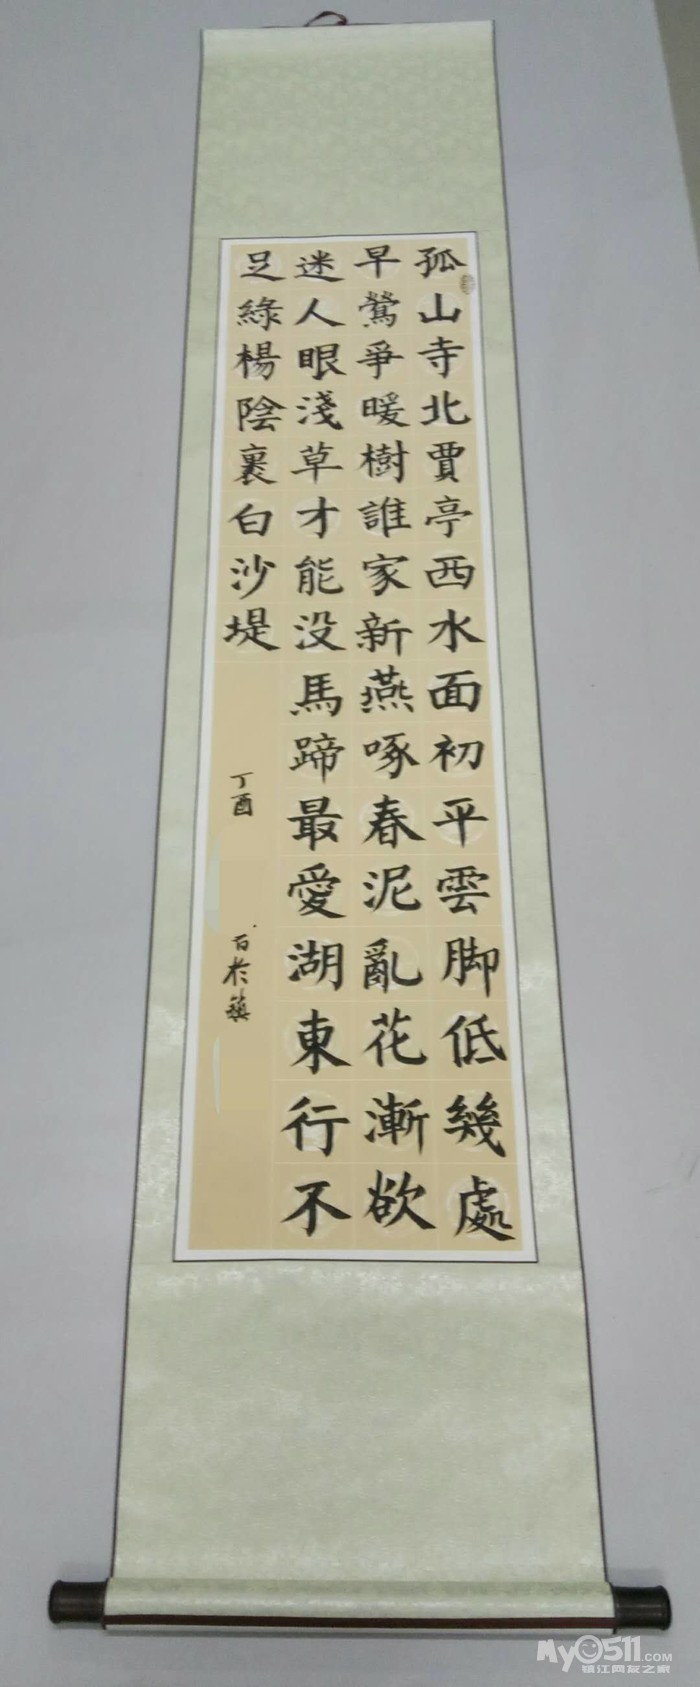 孤山寺北賈亭西水面初平雲脚低幾處
早鶯爭暖樹誰家新燕啄春泥亂花漸欲
迷人眼淺草才能没馬蹄最愛湖東行不
足綠楊陰裏白沙堤
丁酉
於鎮
My0511.COM
镇江网友之家